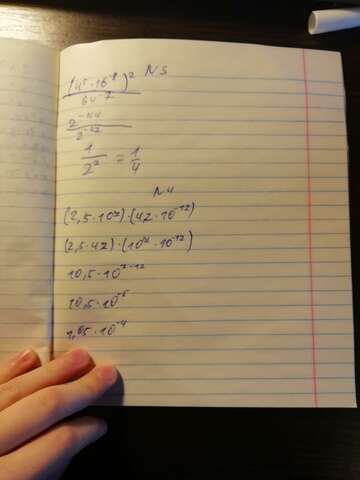 (4⁵·16⁻⁸)² N5
64⁻⁷
2⁻⁴⁴
2⁻⁴²
1/2² = 1/4
N4
(2,5·10⁷)·(42·10⁻¹²)
(2,5·42)·(10⁷·10⁻¹²)
10,5·10⁷⁻¹²
10,5·10⁻⁵
1,05·10⁻⁴